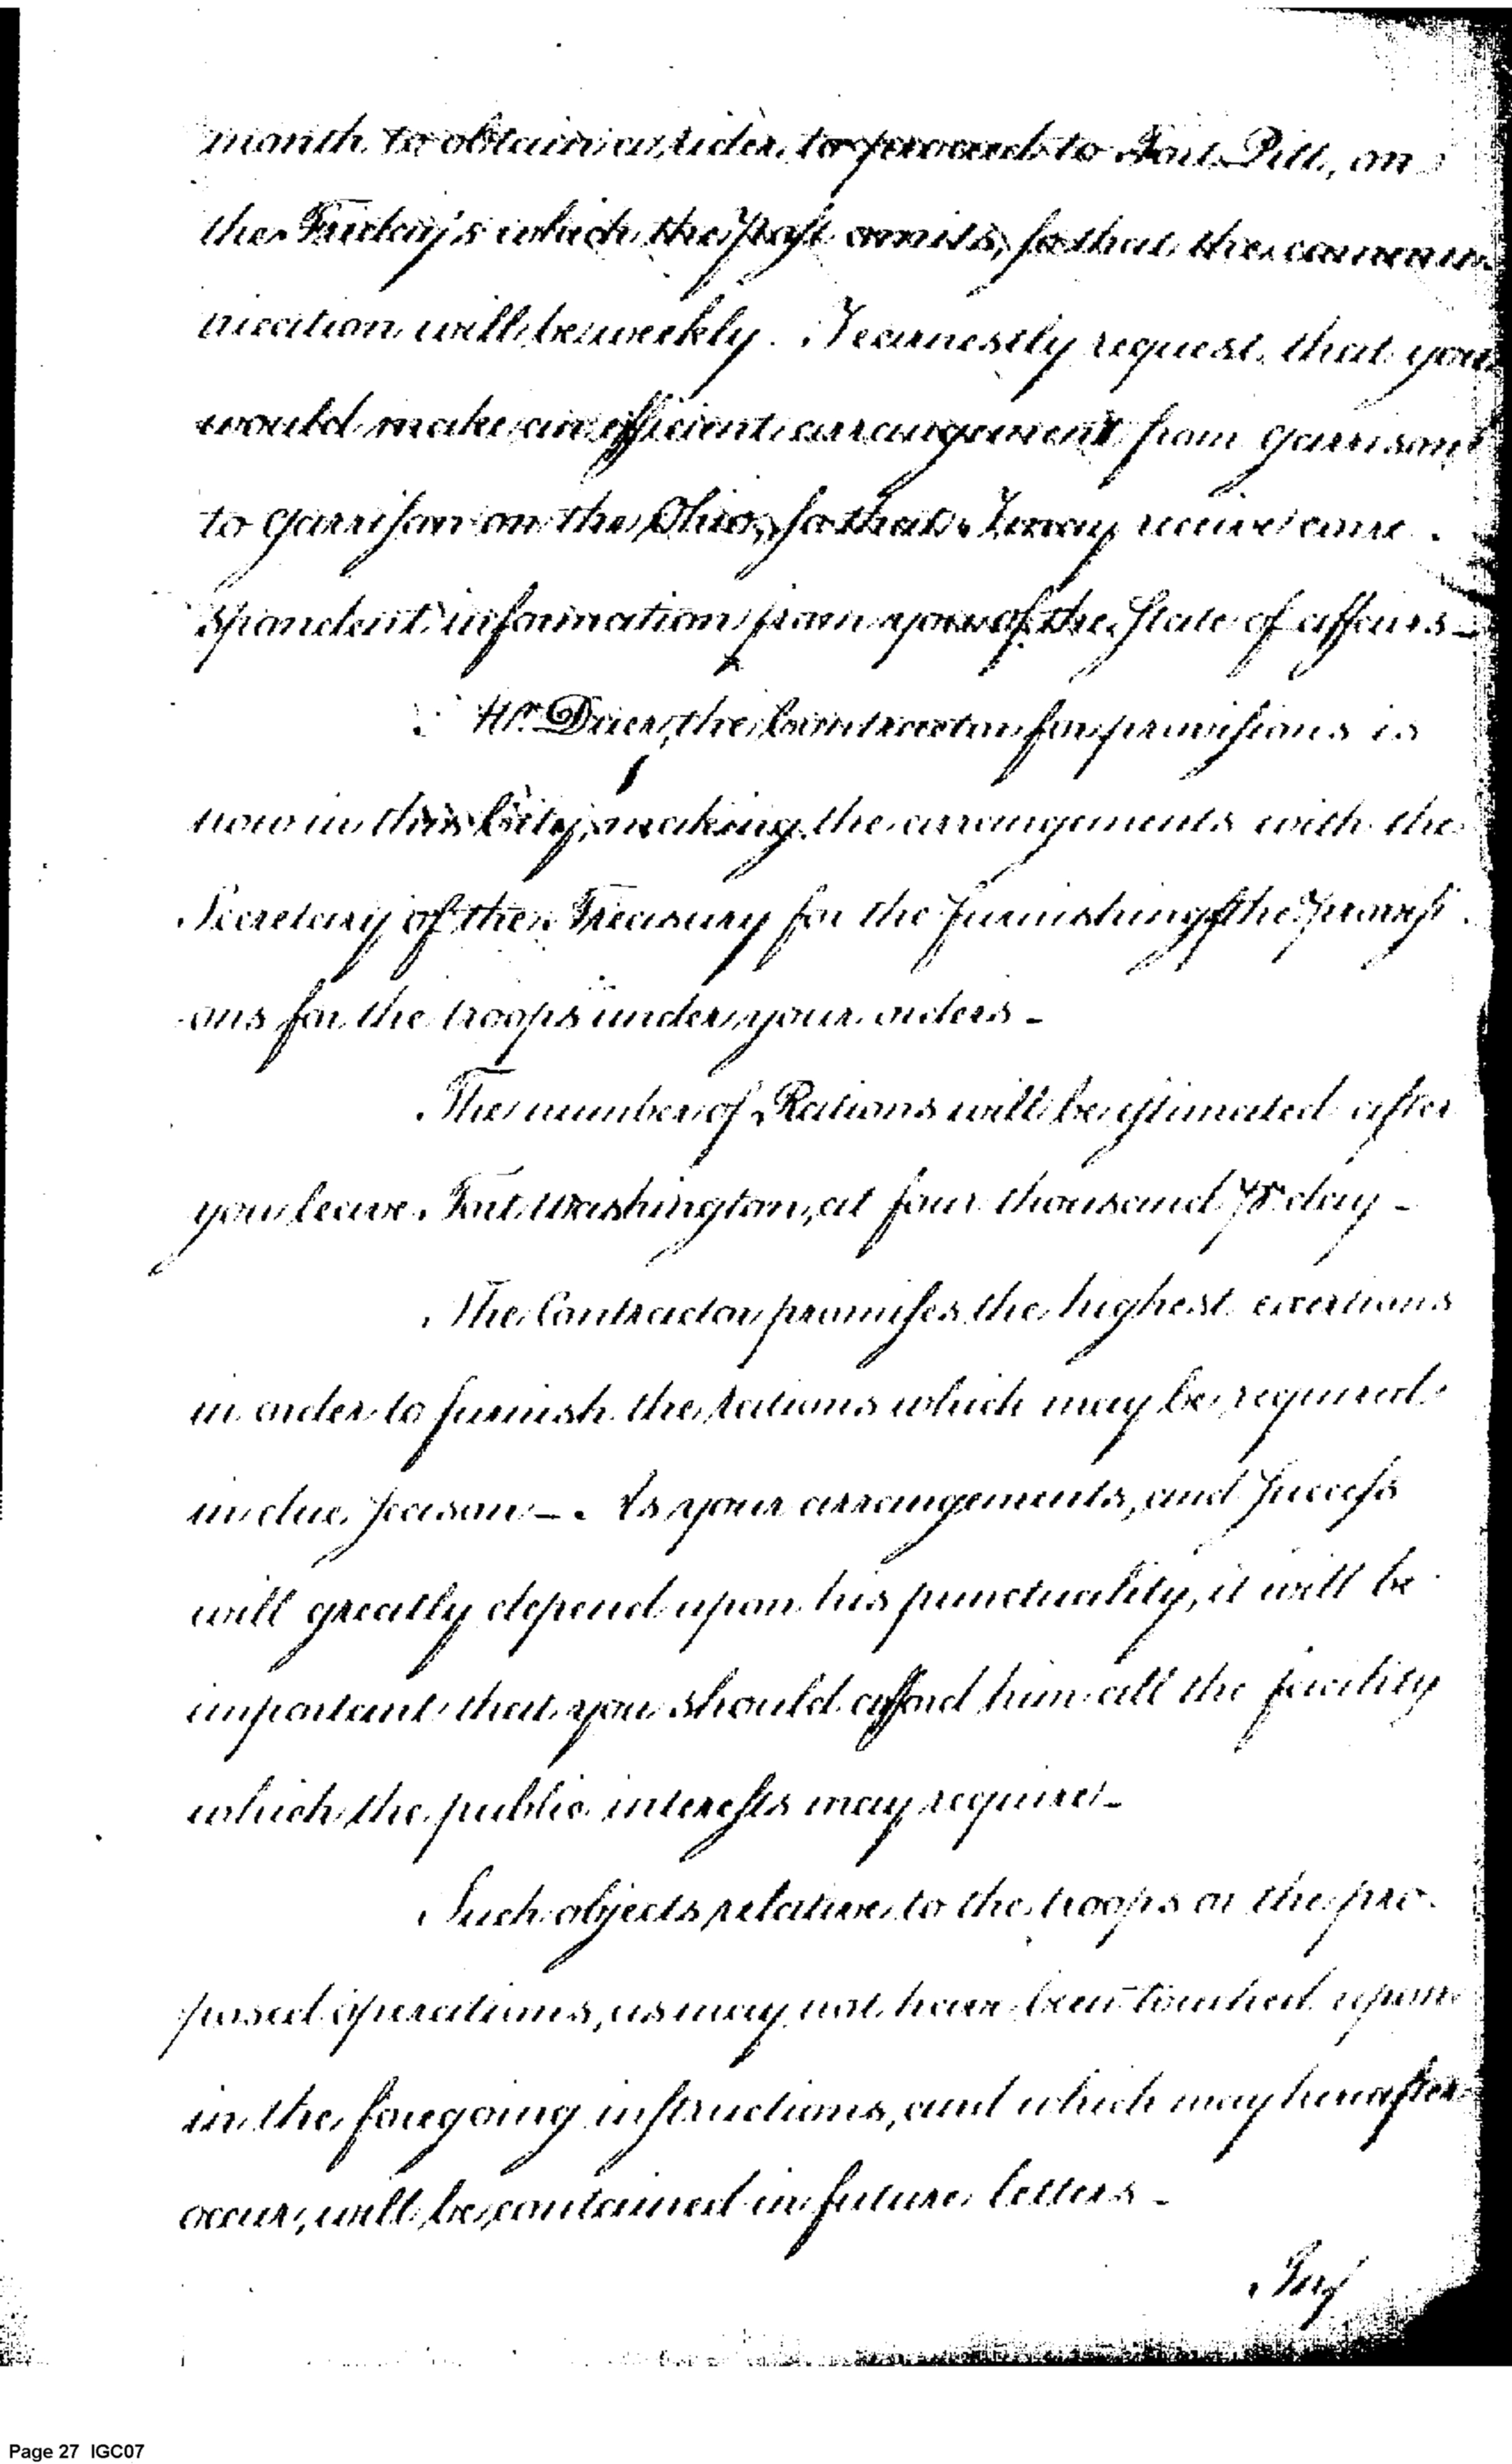 month to obtain a rider, to proceed to Fort Pitt, on
the Friday's which the Post omits, so that the commu-
nication will be weekly. I earnestly request, that you
would make an efficient arrangement from garrison
to garrison on the Ohio, so that I may receive corre-
spondent information from you of the State of affairs -
Mr. Duer, the Contractor for provisions is
now in this City, making the arrangements with the
Secretary of the Treasury for the furnishing of the provisi-
ons for the troops under your orders -
The number of Rations will be estimated after
you leave Fort Washington, at four thousand pr day -
The Contractor promises the highest exertions
in order to furnish the rations which may be required
in due season -. As your arrangements, and success
will greatly depend upon his punctuality, it will be
important that you should afford him all the facility
which the public interests may require -
Such objects relative to the troops or the pro-
posed operations, as may not have been touched upon
in the foregoing instructions, and which may hereafter
occur, will be contained in future letters -
Page 27 IGC07